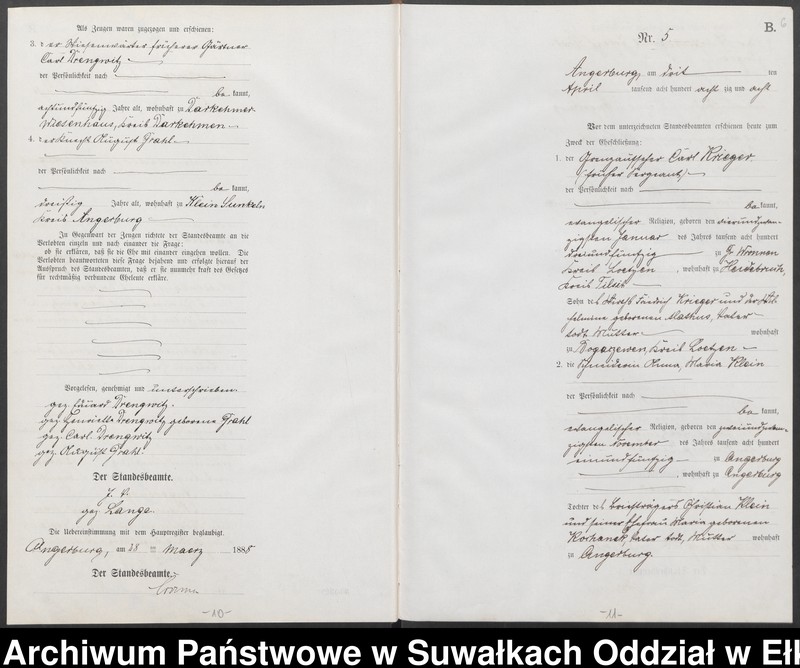 Als Zeugen waren zugezogen und erschienen:
3. der Wiesenwärter früherer Gärtner
Carl Drengwitz
der Persönlichkeit nach
bekannt,
achtundfünfzig Jahre alt, wohnhaft zu Darkehmer
Wiesenhaus, Kreis Darkehmen
4. der Knecht August Grahl
der Persönlichkeit nach
bekannt,
dreißig Jahre alt, wohnhaft zu Klein
Kreis Angerburg
In Gegenwart der Zeugen richtete der Standesbeamte an die
Verlobten einzeln und nach einander die Frage:
ob sie erklären, daß sie die Ehe mit einander eingehen wollen. Die
Verlobten beantworteten diese Frage bejahend und erfolgte hierauf der
Ausspruch des Standesbeamten, daß er sie nunmehr kraft des Gesetzes
für rechtmäßig verbundene Eheleute erkläre.
Vorgelesen, genehmigt und unterschrieben
gez. Eduard Drengwitz.
gez. Henriette Drengwitz geborene Grahl
gez. Carl Drengwitz
gez. August Grahl.
Der Standesbeamte.
J. V.
gez. Lange
Die Uebereinstimmung mit dem Hauptregister beglaubigt.
Angerburg, am 28 ten Maerz 1888
Der Standesbeamte.
-10-
B.
6
Nr. 5
Angerburg, am drit ten
April tausend acht hundert acht zig und acht
Vor dem unterzeichneten Standesbeamten erschienen heute zum
Zweck der Eheschließung:
1. der Grenzaufseher Carl Krieger
(früher Sergeant)
der Persönlichkeit nach
bekannt,
evangelischer Religion, geboren den vierundzwan-
zigsten Januar des Jahres tausend acht hundert
dreiundfünfzig zu Gr. Wronnen
Kreis Loetzen, wohnhaft zu Heidebruch,
Kreis Tilsit
Sohn des Wirths Friedrich Krieger und der Wil-
helmine geborenen Mathus, Vater
todt Mutter wohnhaft
zu Bogaczewen, Kreis Loetzen
2. die Schneiderin Anna, Maria Klein
der Persönlichkeit nach
bekannt,
evangelischer Religion, geboren den zweiundzwan-
zigsten November des Jahres tausend acht hundert
einundfünfzig zu Angerburg
, wohnhaft zu Angerburg
Tochter des Briefträgers Christian Klein
und seiner Ehefrau Maria geborenen
Kochanek, Vater todt, Mutter wohnhaft
zu Angerburg.
-11-
Archiwum Państwowe w Suwałkach Oddział w Eł